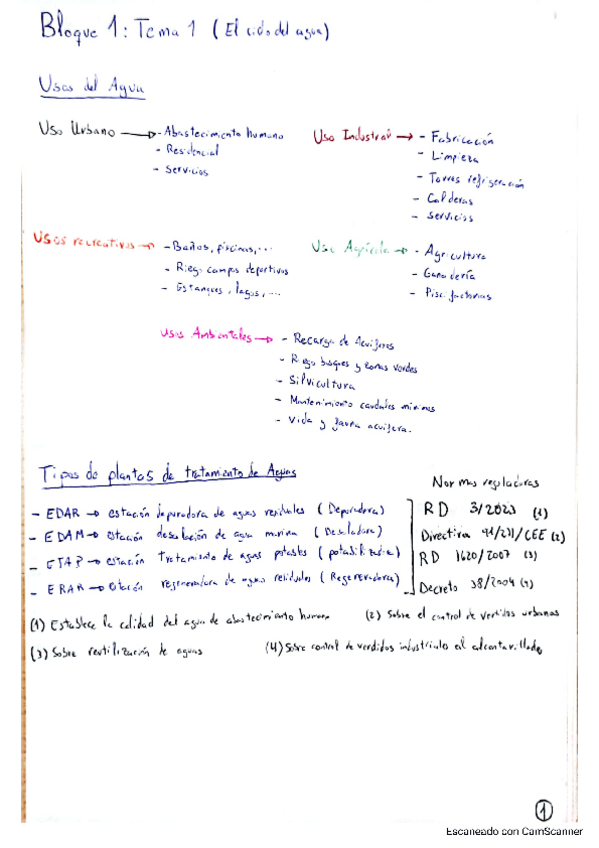 Bloque 1: Tema 1 (El ciclo del agua)
Usos del Agua
Uso Urbano → - Abastecimiento humano
- Residencial
- Servicios
Uso Industrial → - Fabricación
- Limpieza
- Torres refrigeración
- Calderas
- Servicios
Usos recreativos → - Baños, piscinas, ...
- Riego campos deportivos
- Estanques, lagos, ...
Uso Agrícola → - Agricultura
- Ganadería
- Piscifactorias
Usos Ambientales → - Recarga de Acuiferos
- Riego bosques y zonas verdes
- Silvicultura
- Mantenimiento caudales minimos
- Vida y fauna acuifera.
Tipos de plantas de tratamiento de Aguas
Normas reguladoras
- EDAR → estación depuradora de aguas residuales (Depuradora)
- EDAM → estación desalación de agua marina (Desaladora)
- ETAP → estación tratamiento de aguas potables (potabilizadora)
- ERAR → estación regeneradora de aguas residuales (Regeneradora)
RD 3/2023 (1)
Directiva 91/271/CEE (2)
RD 1620/2007 (3)
Decreto 38/2004 (4)
(1) Establece la calidad del agua de abastecimiento humano
(2) Sobre el control de vertidos urbanos
(3) Sobre reutilización de aguas
(4) Sobre control de vertidos industriales al alcantarillado
1
Escaneado con CamScanner